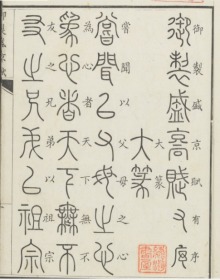 御製盛京賦有序
大篆
嘗聞以父母之心
為心者天下無不
友之兄弟以祖宗